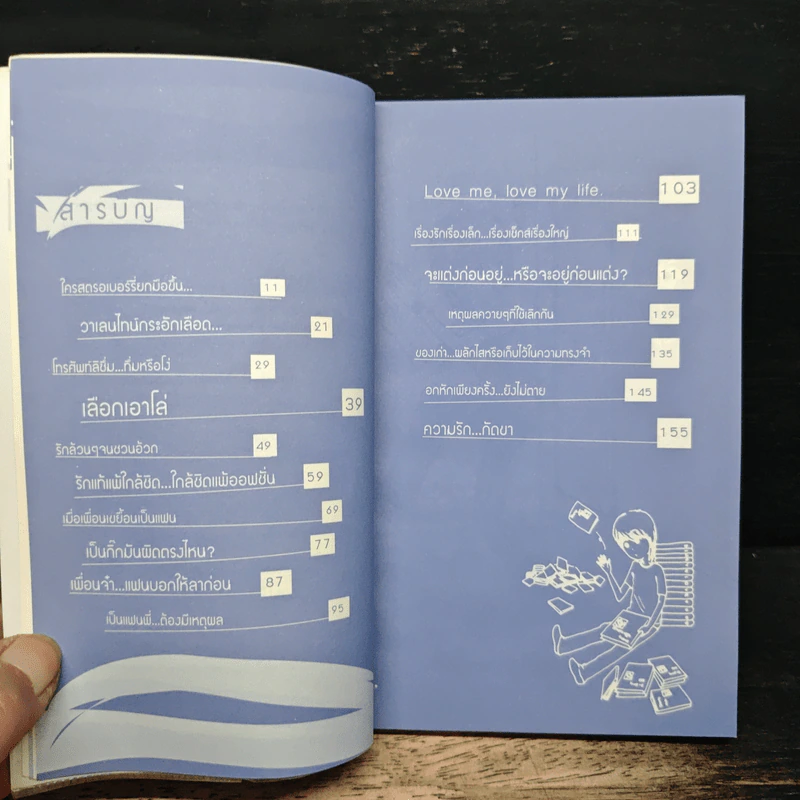 สารบัญ
ใครสตรอเบอร์รี่ยกมือขึ้น... 11
วาเลนไทน์กระอักเลือด... 21
โทรศัพท์ลิซึ่ม...ทึ่มหรือโง่ 29
เลือกเอาโล่ 39
รักล้วนๆจนชวนอ้วก 49
รักแท้แพ้ใกล้ชิด...ใกล้ชิดแพ้ออฟชั่น 59
เมื่อเพื่อนเขยื้อนเป็นแฟน 69
เป็นกิ๊กมันผิดตรงไหน? 77
เพื่อนจ๋า...แฟนบอกให้ลาก่อน 87
เป็นแฟนพี่...ต้องมีเหตุผล 95
Love me, love my life. 103
เรื่องรักเรื่องเล็ก...เรื่องเซ็กส์เรื่องใหญ่ 111
จะแต่งก่อนอยู่...หรือจะอยู่ก่อนแต่ง? 119
เหตุผลควายๆที่ใช้เลิกกัน 129
ของเก่า...ผลักไสหรือเก็บไว้ในความทรงจำ 135
อกหักเพียงครั้ง...ยังไม่ตาย 145
ความรัก...กัดขา 155